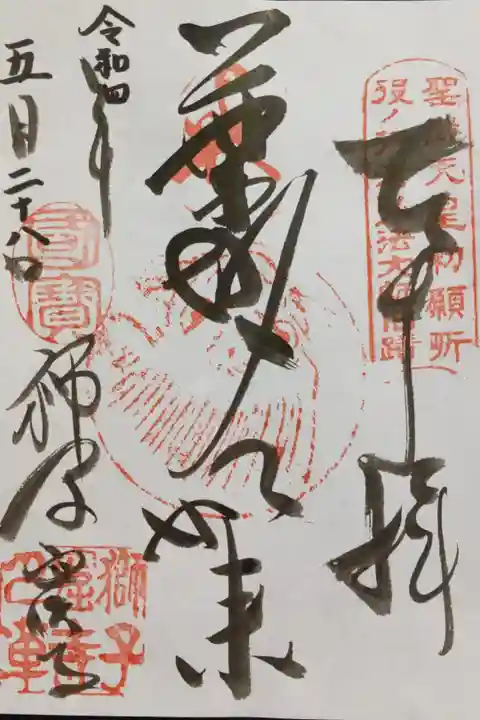 聖武天皇勅願所
役ノ行者弘法大師旧蹟
奉拝
薬師如来
令和四年
五月二十八日
國寶
獅子窟
獅子
窟寺